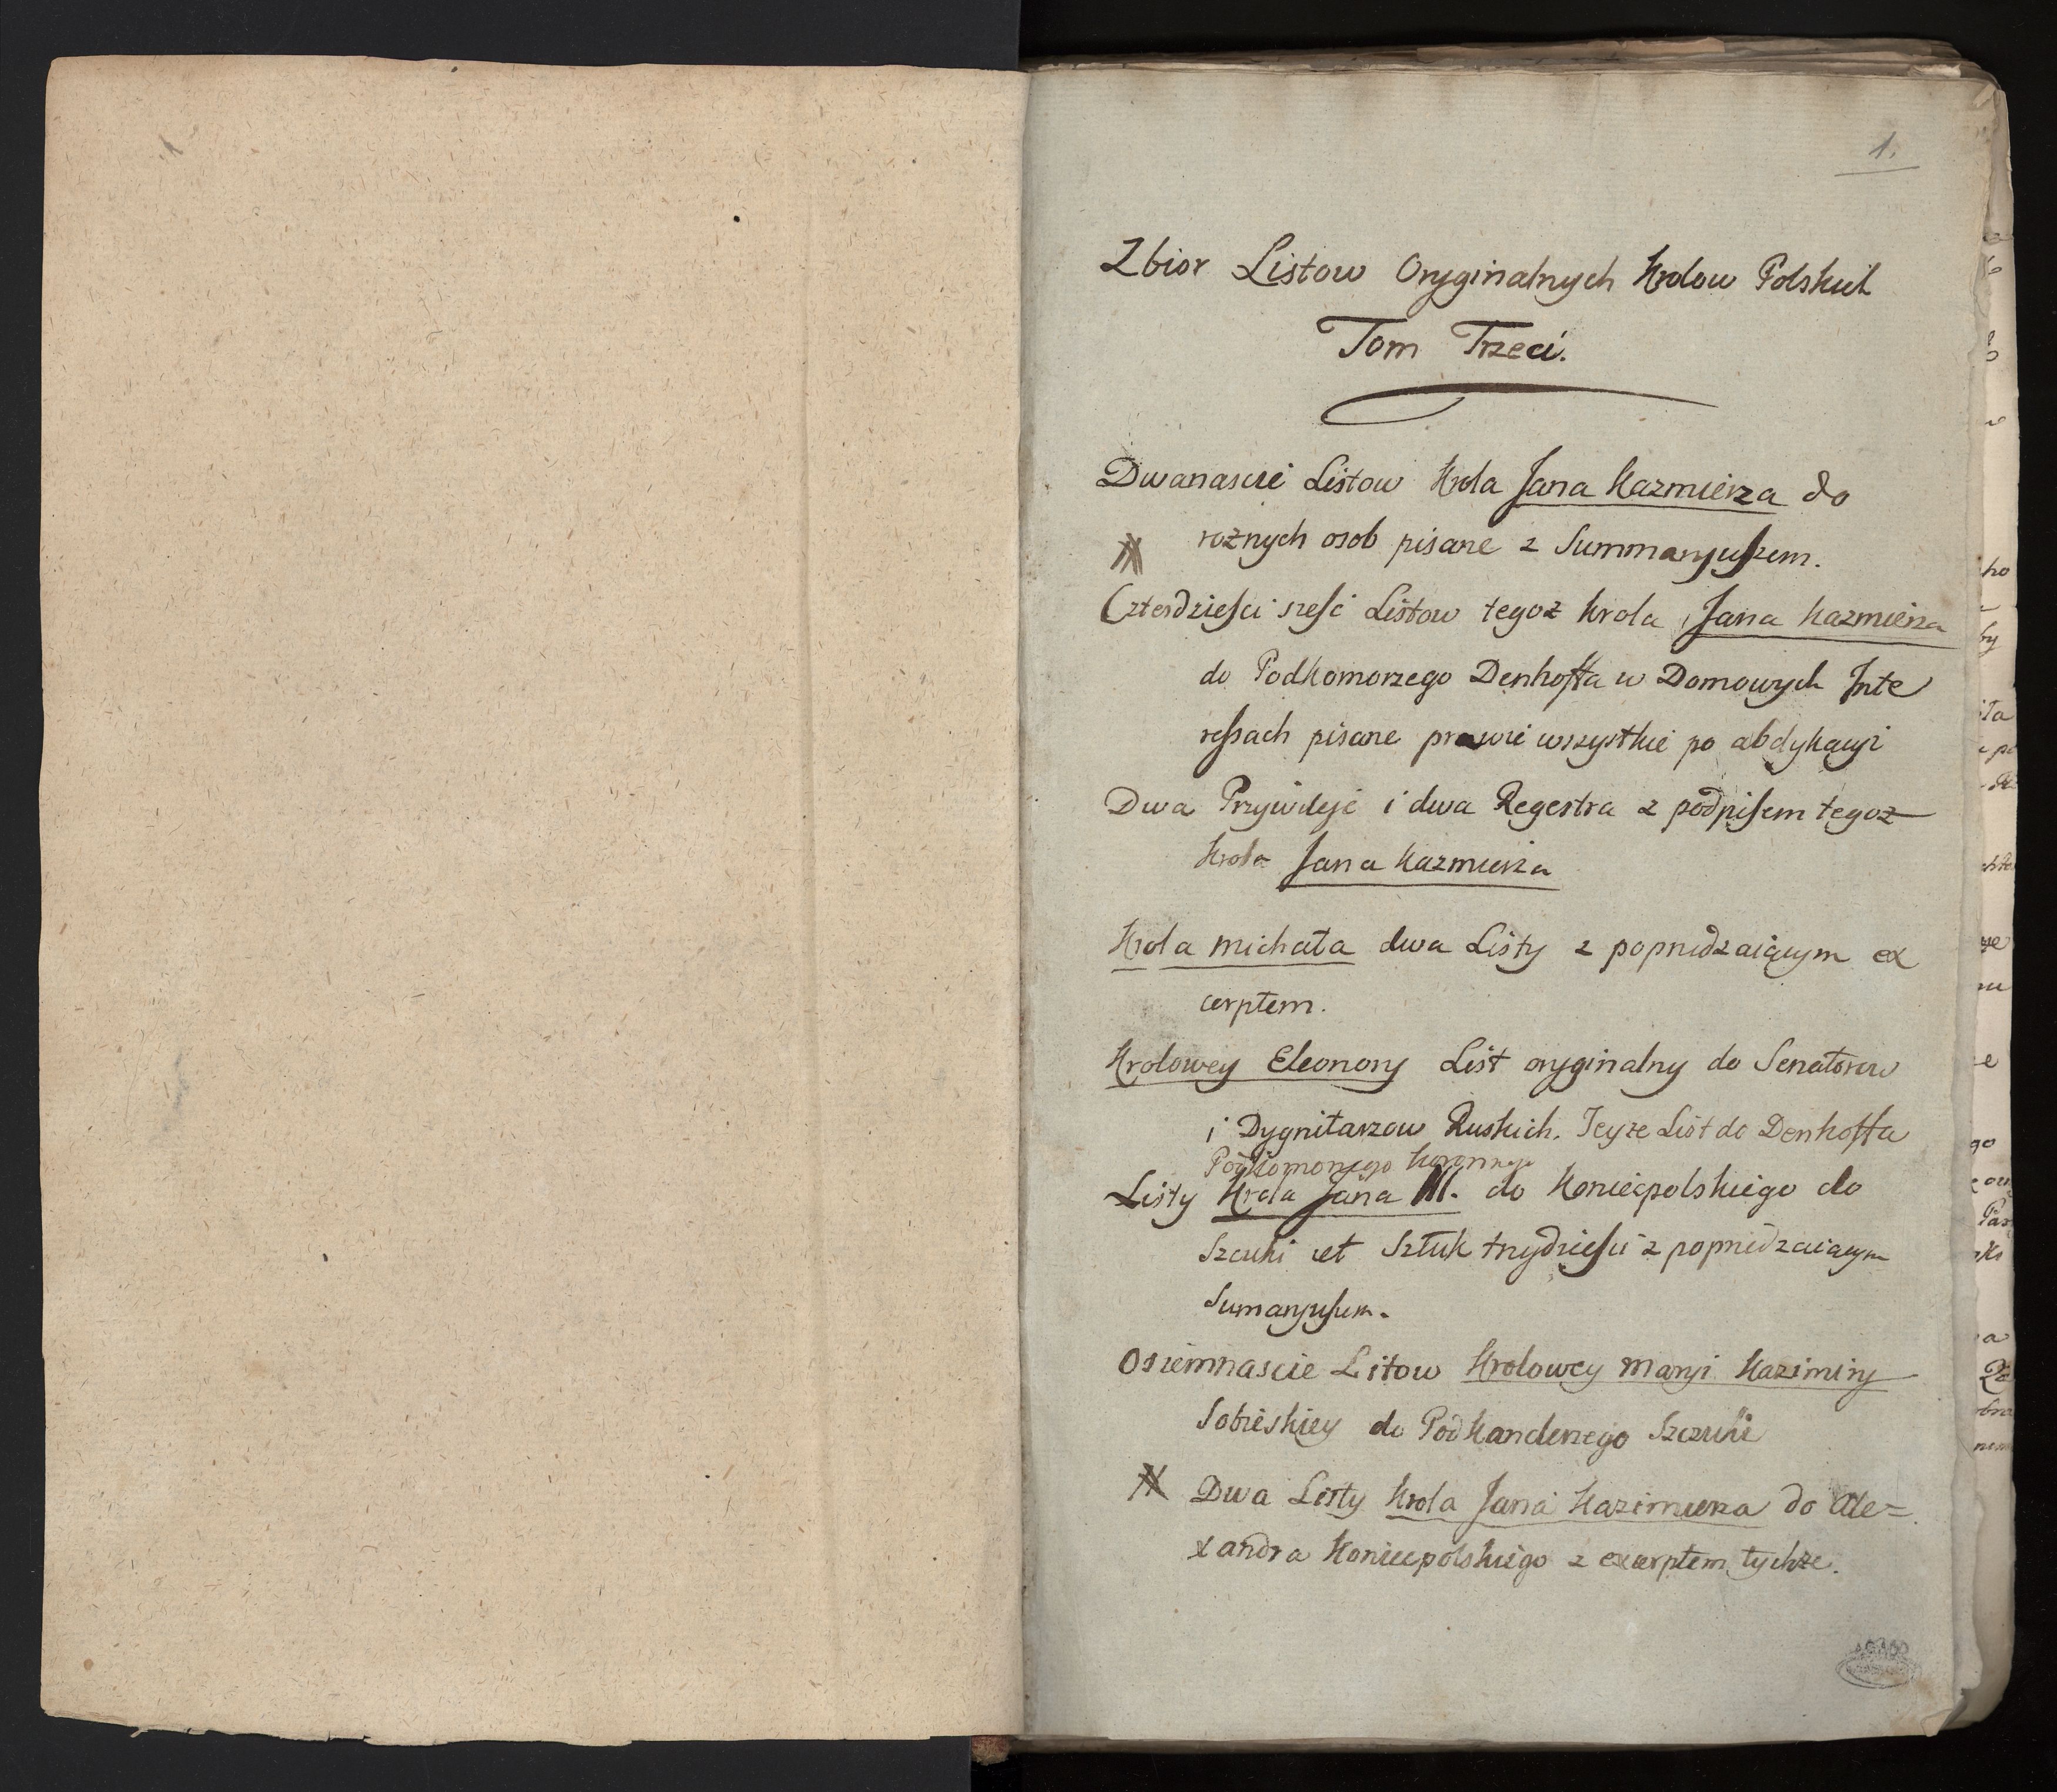 1.
Zbior Listow Oryginalnych Krolow Polskich
Tom Trzeci.
Dwanascie Listow Krola Jana Kazmierza do
roznych osob pisane z Summaryuszem.
Czterdziesci szesc Listow tegoz Krola Jana Kazmierza
do Podkomorzego Denhoffa w Domowych Inte
ressach pisane prawie wszystkie po abdykacyi
Dwa Przywileje i dwa Regestra z podpisem tegoz
Krola Jana Kazmierza
Krola Michała dwa Listy z poprzedzaiącym ex
cerptem.
Krolowey Eleonory List oryginalny do Senatorow
i Dygnitarzow Ruskich. Teyze List do Denhoffa
Podkomorzego Koronnego
Listy Krola Jana III. do Koniecpolskiego do
Szczuki et Sztuk trzydziesci z poprzedzaiącym
Sumaryuszem.
Osiemnascie Litow Krolowey Maryi Kazimiry
Sobieskiey do Podkanclerzego Szczuki
Dwa Listy Krola Jana Kazimierza do Ale=
xandra Koniecpolskiego z excerptem tychze.